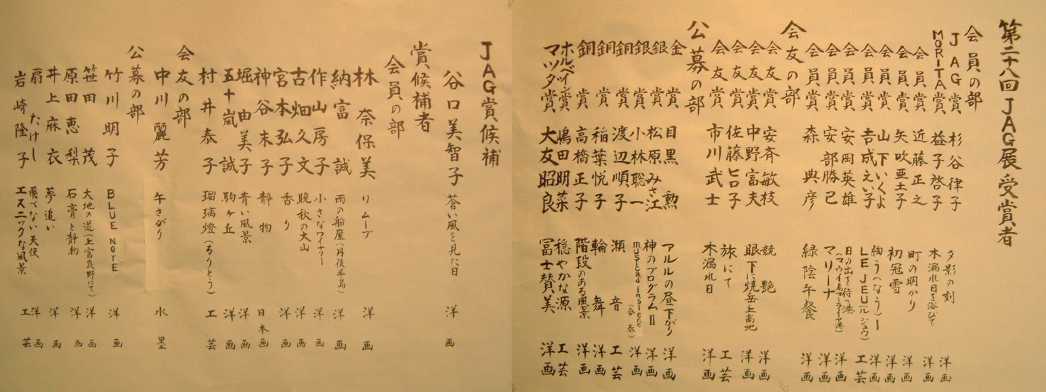 第二十八回 JAG展 受賞者
会員の部
JAG賞 杉谷律子 夕影の刻 洋画
MORITA賞 益子啓子 木漏れ日を浴びて 洋画
会員賞 近藤正之 町の明かり 洋画
会員賞 矢吹亜土子 初冠雪 洋画
会員賞 山下いくよ 工芸
会員賞 吉成えい子 LE JEU 洋画
会員賞 安岡英雄 洋画
会員賞 安部勝己 マリーナ 洋画
会員賞 森 興彦 緑陰午餐 洋画
会友の部
会友賞 安斉敏枝 競艶 洋画
会友賞 中野富夫 眼下に焼岳上高地 洋画
会友賞 佐藤ヒロ子 旅にて 工芸
会友賞 市川武士 木漏れ日 洋画
公募の部
金賞 目黒 勲 アルルの昼下がり 洋画
銀賞 松原みさ江 神のプログラムⅡ 洋画
銀賞 小林聡一 洋画
銅賞 渡辺順子 瀬音 工芸
銅賞 稲葉悦子 輪舞 洋画
銅賞 高橋正子 階段のある風景 洋画
ホルベイン賞 嶋田明菜 穏やかな源 工芸
マツダ賞 大友昭良 冨士賛美 洋画
JAG賞候補
谷口美智子 蒼い風を見た日 洋画
賞候補者
会員の部
林 奈保美 リムーブ 洋画
納富 誠 雨の船屋(丹後半島) 洋画
作山房子 小さなワイナリー 洋画
古畑久文 晩秋の火山 洋画
宮本弘子 香り 洋画
神谷末子 静物 日本画
堀 由美子 青い風景 洋画
五十嵐 誠 駒ヶ丘 洋画
村井泰子 瑠璃燈(るりとう) 工芸
会友の部
中川麗芳 午さがり 水墨
公募の部
竹川明子 BLUE NOTE 洋画
笹田 茂 大地の道(上富良野にて) 洋画
原田恵梨 石膏と静物 洋画
井上麻衣 夢追い 洋画
扇 たけし 飛べない天使 洋画
岩崎隆子 エスニックな風景 工芸